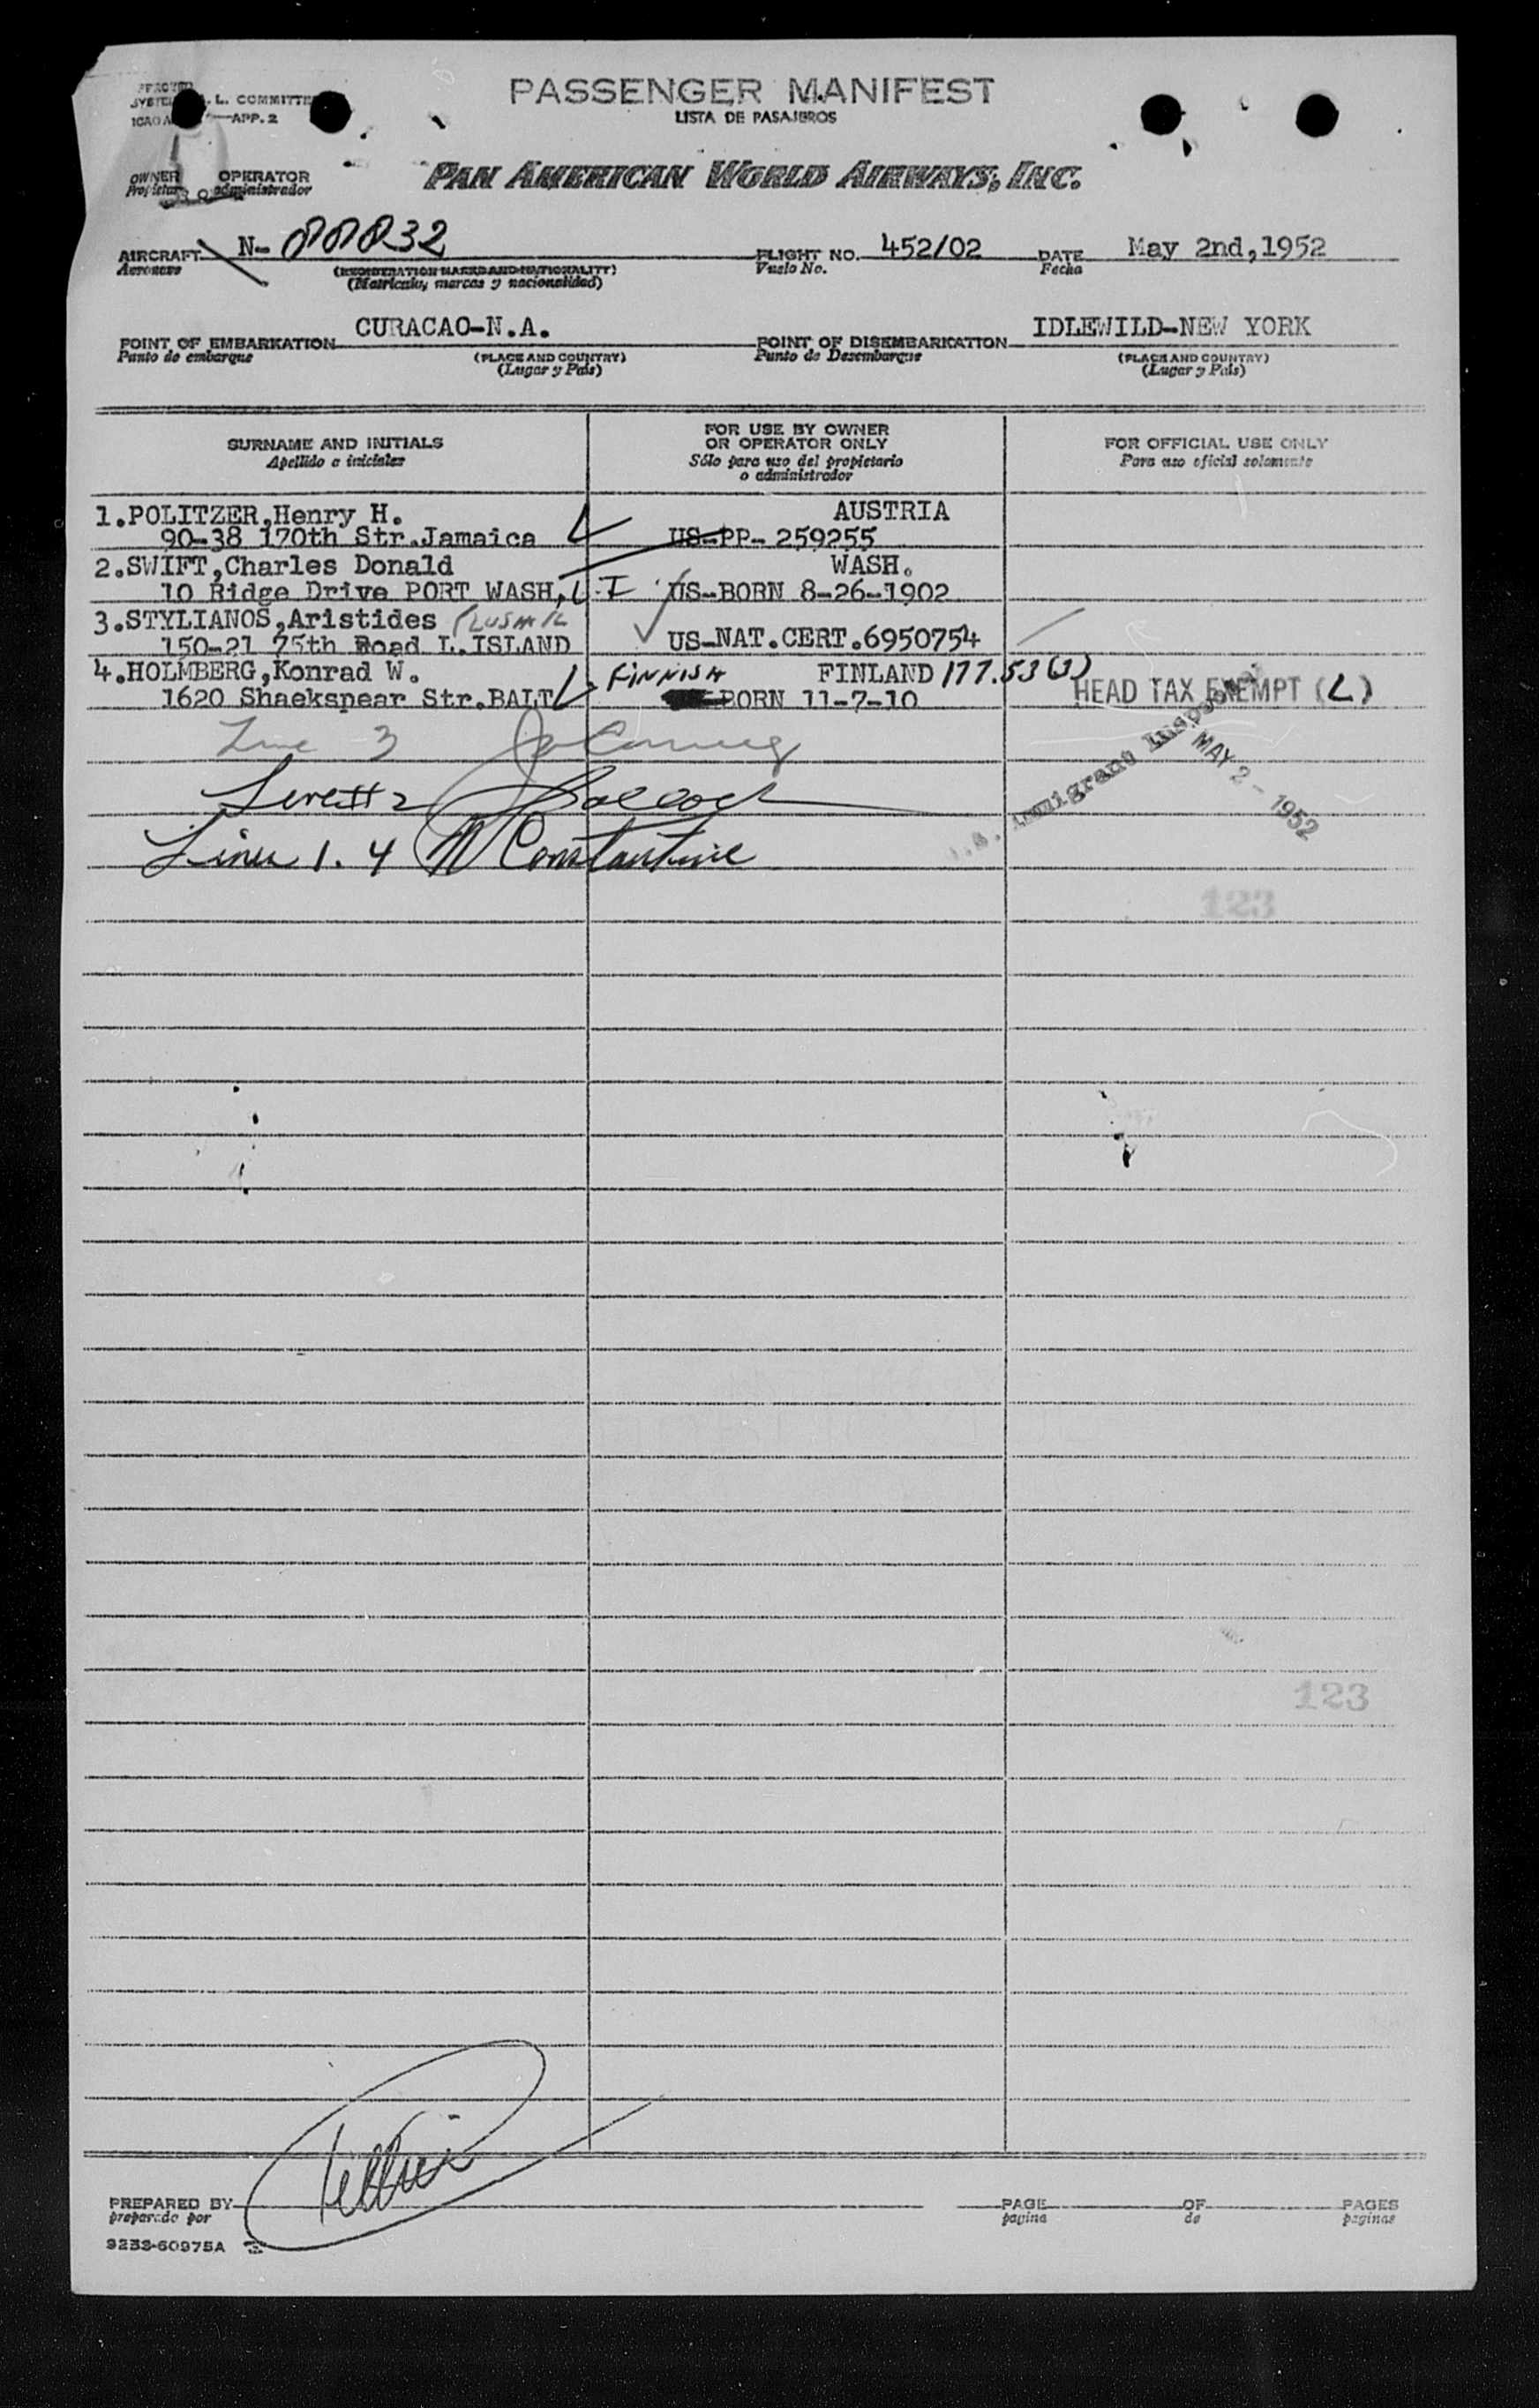 L. COMMITTE
APP. 2
PASSENGER MANIFEST
LISTA DE PASAJEROS
OWNER OPERATOR
Propietar administrador
PAN AMERICAN WORLD AIRWAYS, INC.
AIRCRAFT N- 88832 FLIGHT NO. 452/02 DATE May 2nd,1952
Aeronave (REGISTRATION MARKS AND NATIONALITY) Vuelo No. Fecha
(Matricula, marcas y nacionalidad)
POINT OF EMBARKATION CURACAO-N.A. POINT OF DISEMBARKATION IDLEWILD-NEW YORK
Punto de embarque (PLACE AND COUNTRY) Punto de Desembarque (PLACE AND COUNTRY)
(Lugar y Pais) (Lugar y Pais)
SURNAME AND INITIALS FOR USE BY OWNER OR OPERATOR ONLY FOR OFFICIAL USE ONLY
Apellido e iniciales Sólo para uso del propietario o administrador Para uso oficial solamente
1.POLITZER,Henry H. AUSTRIA
90-38 170th Str.Jamaica US-PP- 259255
2.SWIFT,Charles Donald WASH.
10 Ridge Drive PORT WASH, L.I US-BORN 8-26-1902
3.STYLIANOS,Aristides
150-21 75th Road L.ISLAND US-NAT.CERT.6950754
4.HOLMBERG,Konrad W. FINNISH FINLAND 177.53(3)
1620 Shaekspear Str.BALT BORN 11-7-10 HEAD TAX EXEMPT (L)
Line 3
Immigrant Inspector
MAY 2 - 1952
Lines 1. 4 Constantine
123
123
PREPARED BY PAGE OF PAGES
preparado por pagina de paginas
9233-60975A